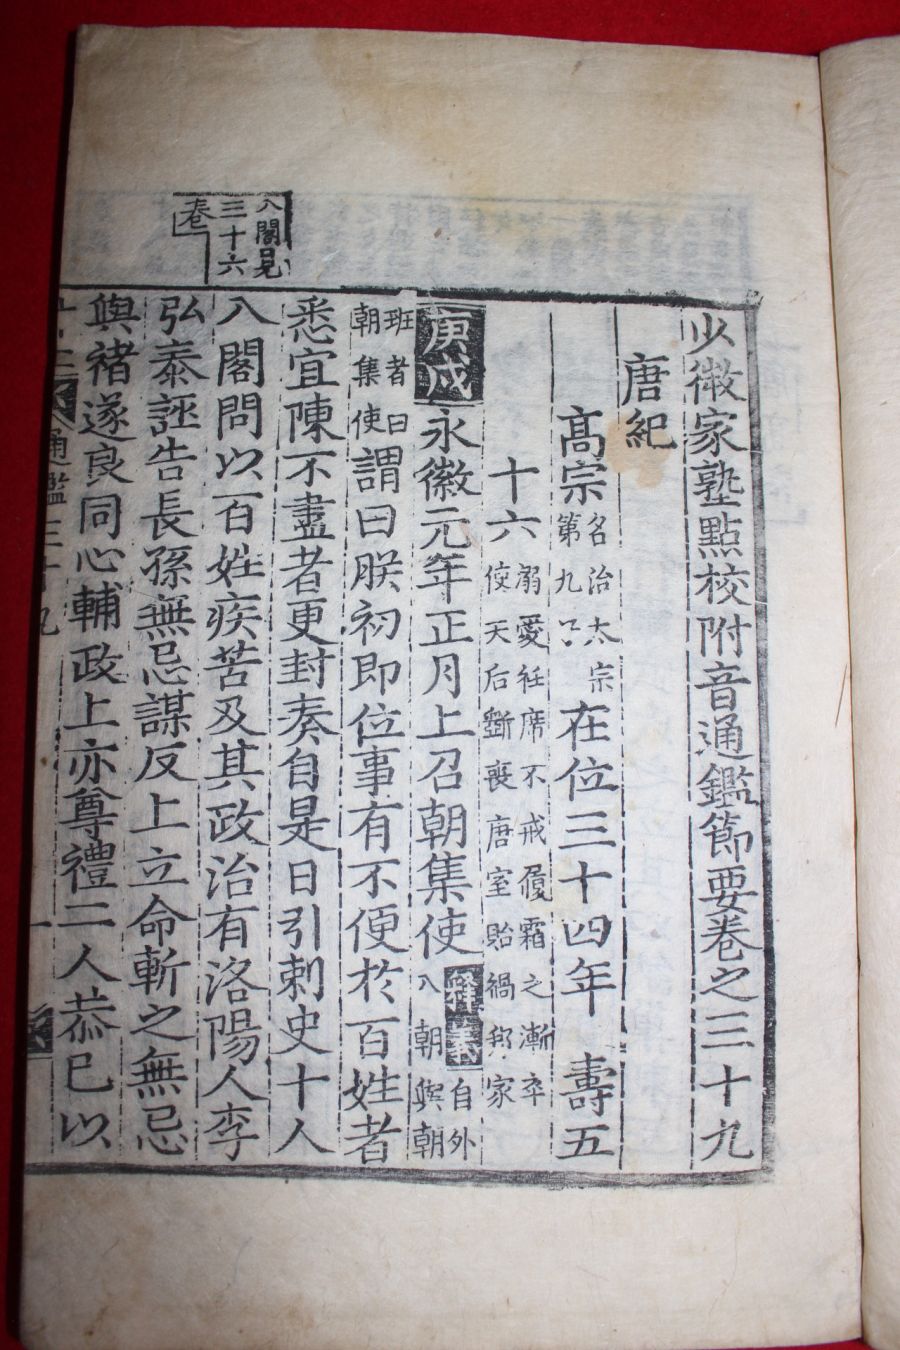 少微家塾點校附音通鑑節要卷之三十九
唐紀
高宗名治太宗第九子在位三十四年 壽五
十六溺愛衽席不戒履霜之漸卒使天后斲喪唐室貽禍邦家
庚戌永徽元年正月上召朝集使釋義自外入朝與朝
班者曰朝集使謂曰朕初即位事有不便於百姓者
悉宜陳不盡者更封奏自是日引刺史十人
入閤問以百姓疾苦及其政治有洛陽人李
弘泰誣告長孫無忌謀反上立命斬之無忌
與褚遂良同心輔政上亦尊禮二人恭己以
通鑑三十九 一
入閤見
三十六
卷